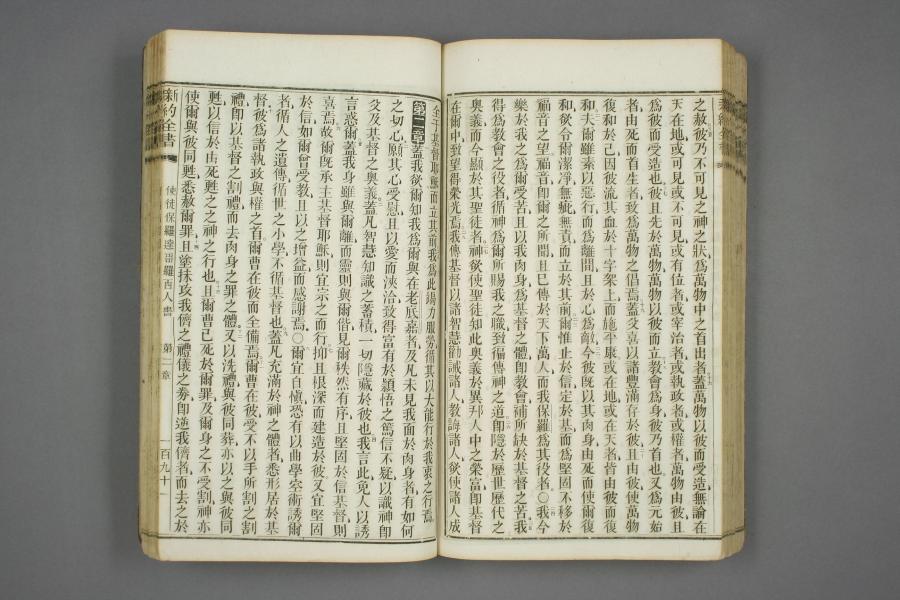 之赦彼乃不可見之神之狀爲萬物中之首出者蓋萬物以彼而受造無論在
天在地或可見或不可見或有位者或宰治者或執政者或權者萬物由彼且
爲彼而受造也彼且先於萬物萬物以彼而立教會爲身彼乃首也又爲元始
者由死而首生者致爲萬物之倡焉蓋父喜以諸豐滿存於彼也且由彼使萬物
復和於己因彼流其血於十字架上而施平康或在地或在天者皆由彼而復
和夫爾雖素以惡行而爲離間且於心爲敵今彼旣以其肉身由死而使爾復
和欲令爾潔淨無疵無責而立於其前爾惟止於信定於基而爲堅固不移於
福音之望福音卽爾之所聞且已傳於天下萬人而我保羅爲其役者○我今
樂於我之爲爾受苦且以我肉身爲基督之體卽教會補所缺於基督之苦我
得爲教會之役者循神爲爾所賜我之職致徧傳神之道卽隱於歷世歷代之
奧義而今顯於其聖徒者神欲使聖徒知此奧義於異邦人中之榮富卽基督
在爾中致望得榮光焉我傳基督以諸智慧勸誡諸人教誨諸人欲使諸人成
全于基督耶穌而立其前我爲此竭力服勞循其以大能行於我衷之行焉
第二章蓋我欲爾知我爲爾與在老底嘉者及凡未見我面於肉身者有如何
之切心願其心受慰且以愛而浹洽致得富有於穎悟之篤信不疑以識神卽
父及基督之奧義蓋凡智慧知識之蓄積一切隱藏於彼也我言此免人以誘
言惑爾蓋我身雖與爾離而靈則與爾偕見爾秩然有序且堅固於信基督則
喜焉故爾旣承主基督耶穌則宜宗之而行抑且根深而建造於彼又宜堅固
於信如爾曾受教且以之增益而感謝焉○爾宜自愼恐有以曲學空術誘爾
者循人之遺傳循世之小學不循基督也蓋凡充滿於神之體者悉形居於基
督彼爲諸執政與權之首爾曹在彼而全備焉爾曹在彼受不以手所割之割
禮卽以基督之割禮而去肉身之罪之體又以洗禮與彼同葬亦以之與彼同
甦以信於由死甦之之神之行也且爾曹已死於爾罪及爾身之不受割神亦
使爾與彼同甦悉赦爾罪且塗抹攻我儕之禮儀之劵卽逆我儕者而去之於
新約全書
使徒保羅達哥羅西人書
第二章
一百九十一